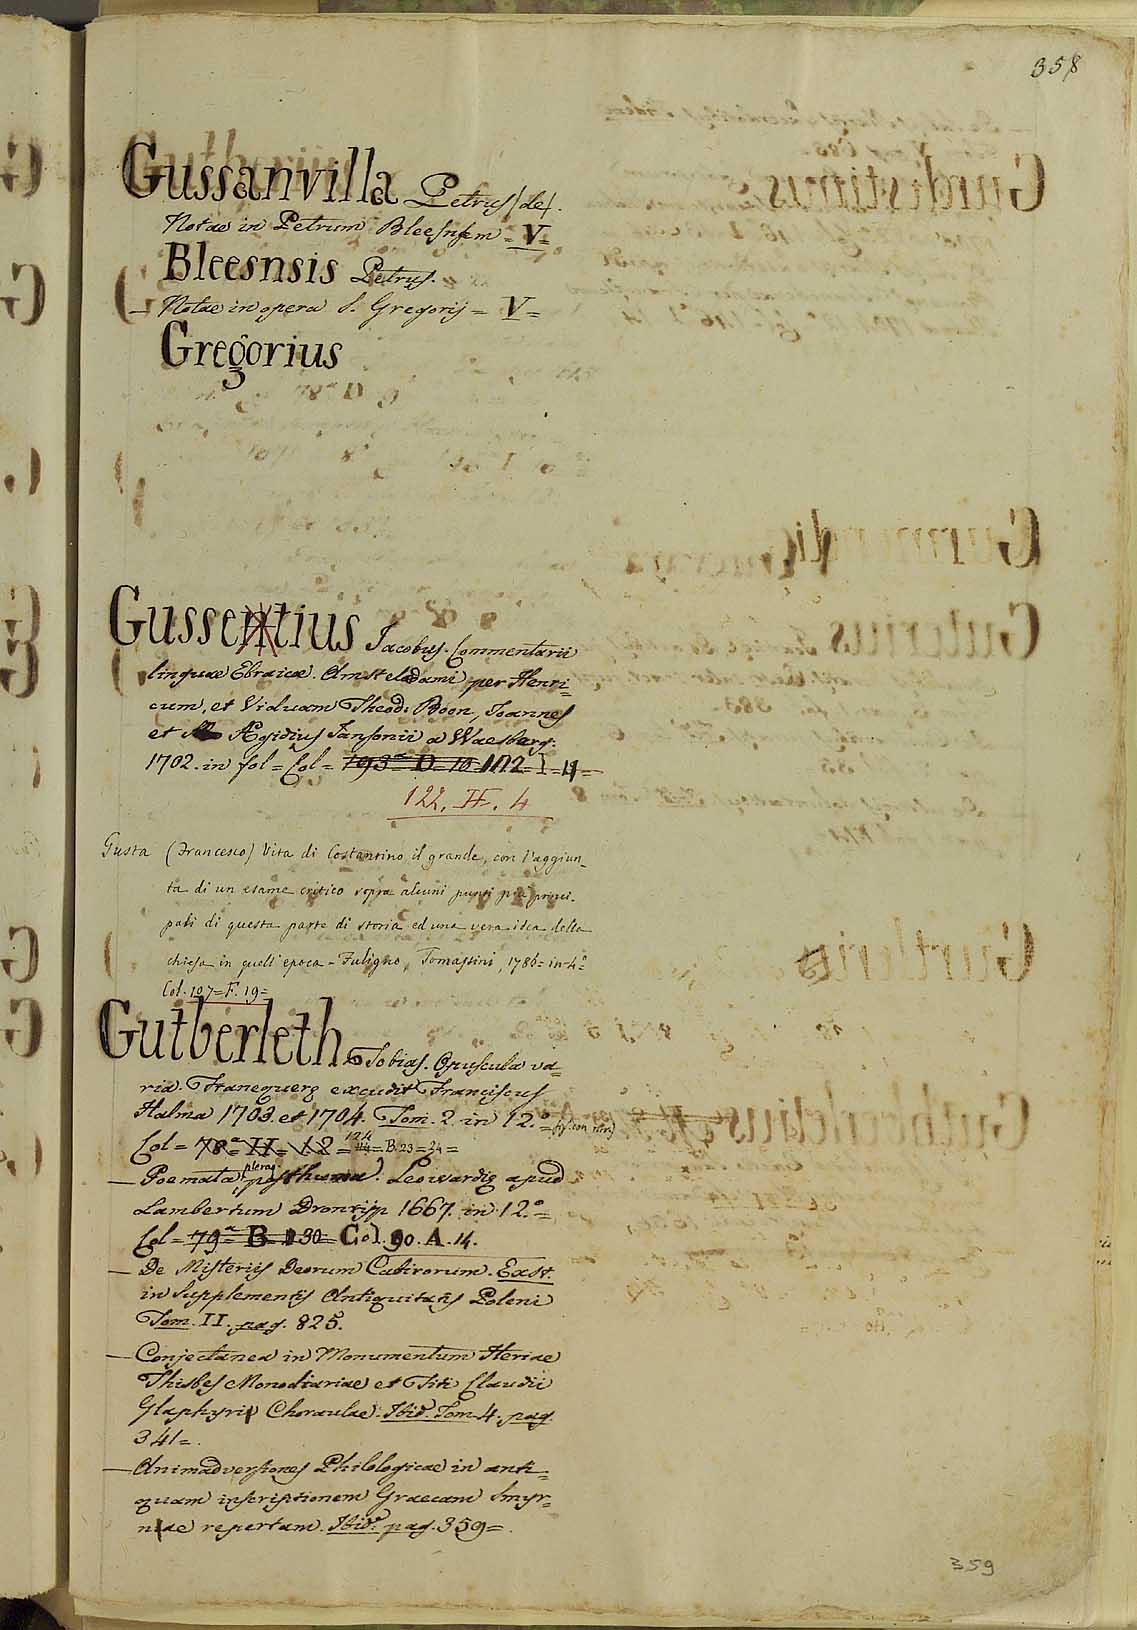 358
Gussanvilla Petrus (de).
Notae in Petrum Bleesnsem = V=
Bleesnsis Petrus.
— Notae in opera S. Gregorij = V =
Gregorius
Gussentius Jacobus. Commentarii
linguae Ebraicae. Amstelodami per Henri-
cum, et Viduam Theod: Boon, Joannes
et Ægidius Jansonii a Waesberg:
1702. in fol = Col = 193ª D = 10 = 112 = I = 4 =
122. F. 4
Gusta (Francesco) Vita di Costantino il grande, con l'aggiun_
ta di un esame critico sopra alcuni punti più princi_
pali di questa parte di storia ed una vera idea della
chiesa in quell'epoca - Fuligno, Tomassini, 1786 = in-4º=
Col. 107 = F. 19 =
Gutberleth Tobias. Opuscula va=
ria. Franequerę excudit Franciscus
Halma 1703. et 1704. Tom. 2. in 12.º =
Col = 78ª = II = 12 = 124 = B. 23 = 24 =
— Poemata pleraq. posthuma. Leovardię apud
Lambertum Dronrijp 1667. in 12.º =
Col = 79ª = B = 30 = Col. 90. A. 14.
— De Misteriis Deorum Cabirorum. Exst.
in Supplementis Antiquitatis Poleni
Tom. II. pag. 825.
— Conjectanea in Monumentum Heriae
Thisbes Monodiariae et Titi Claudii
Glaphyri Choraulae: Ibid. Tom. 4. pag.
341 = .
— Animadversiones Philologicae in anti=
quam inscriptionem Graecam Smyr=
nae repertam. Ibid. pag. 359 = .
359